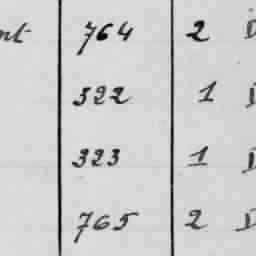 nt 764 2 D
322 1 D
323 1 D
765 2 D